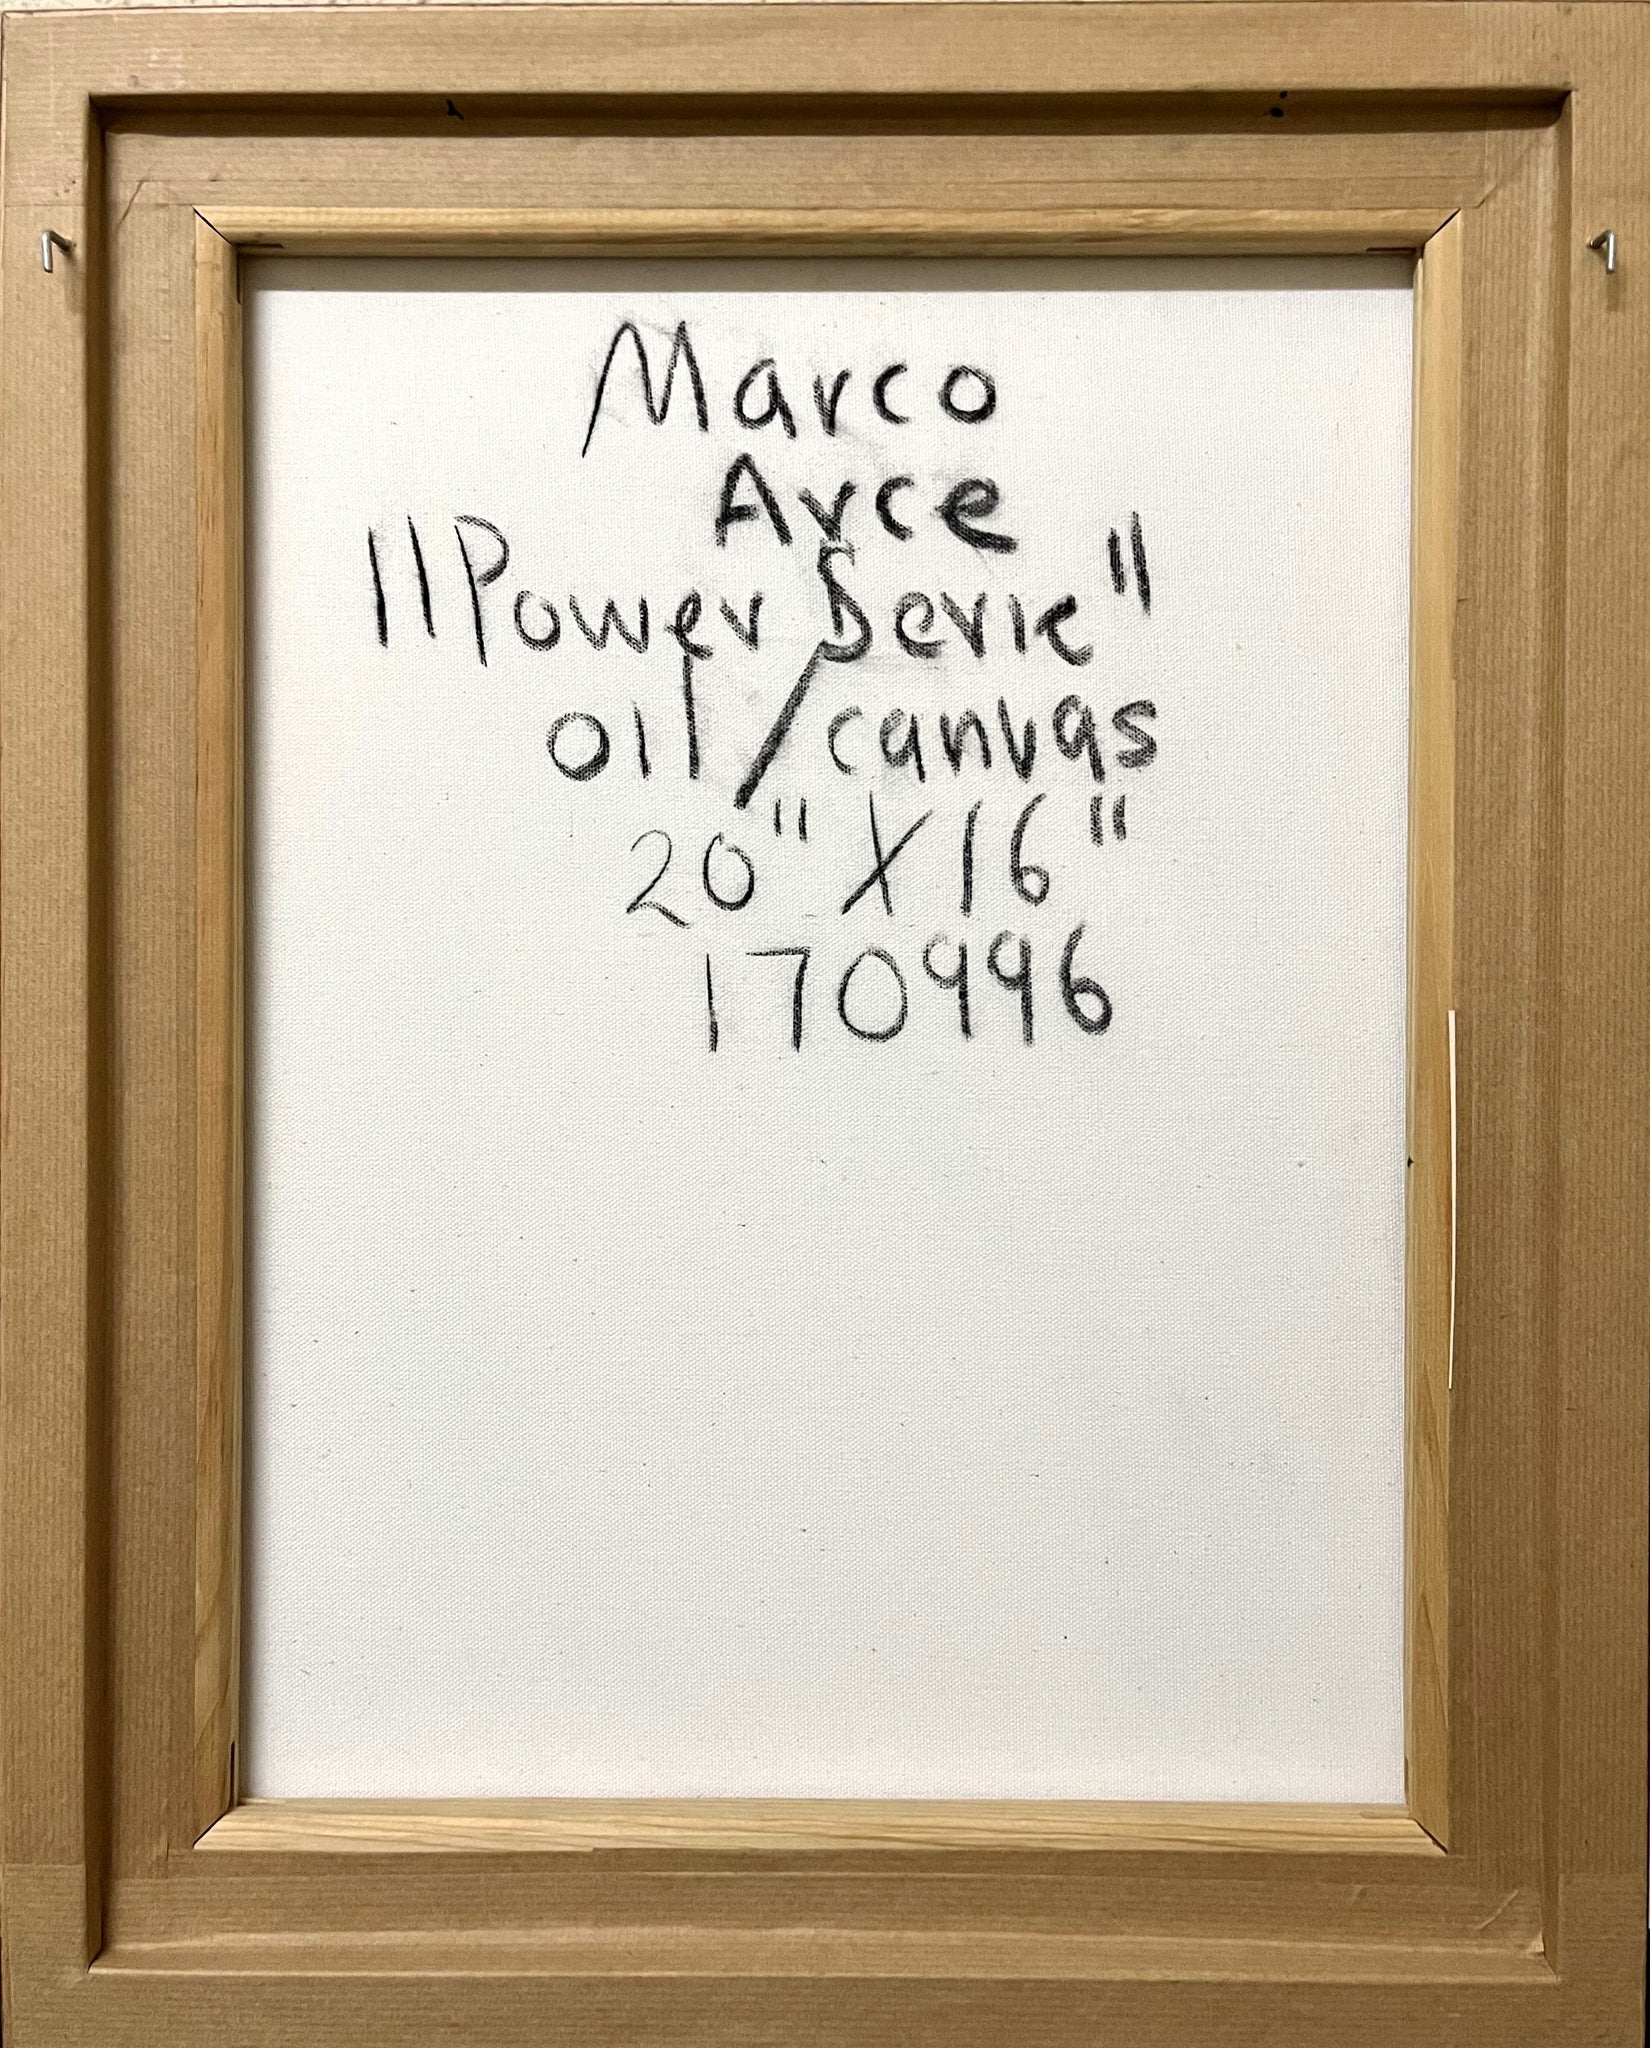 Marco
Arce
"Power Serie"
oil/canvas
20" X 16"
170996